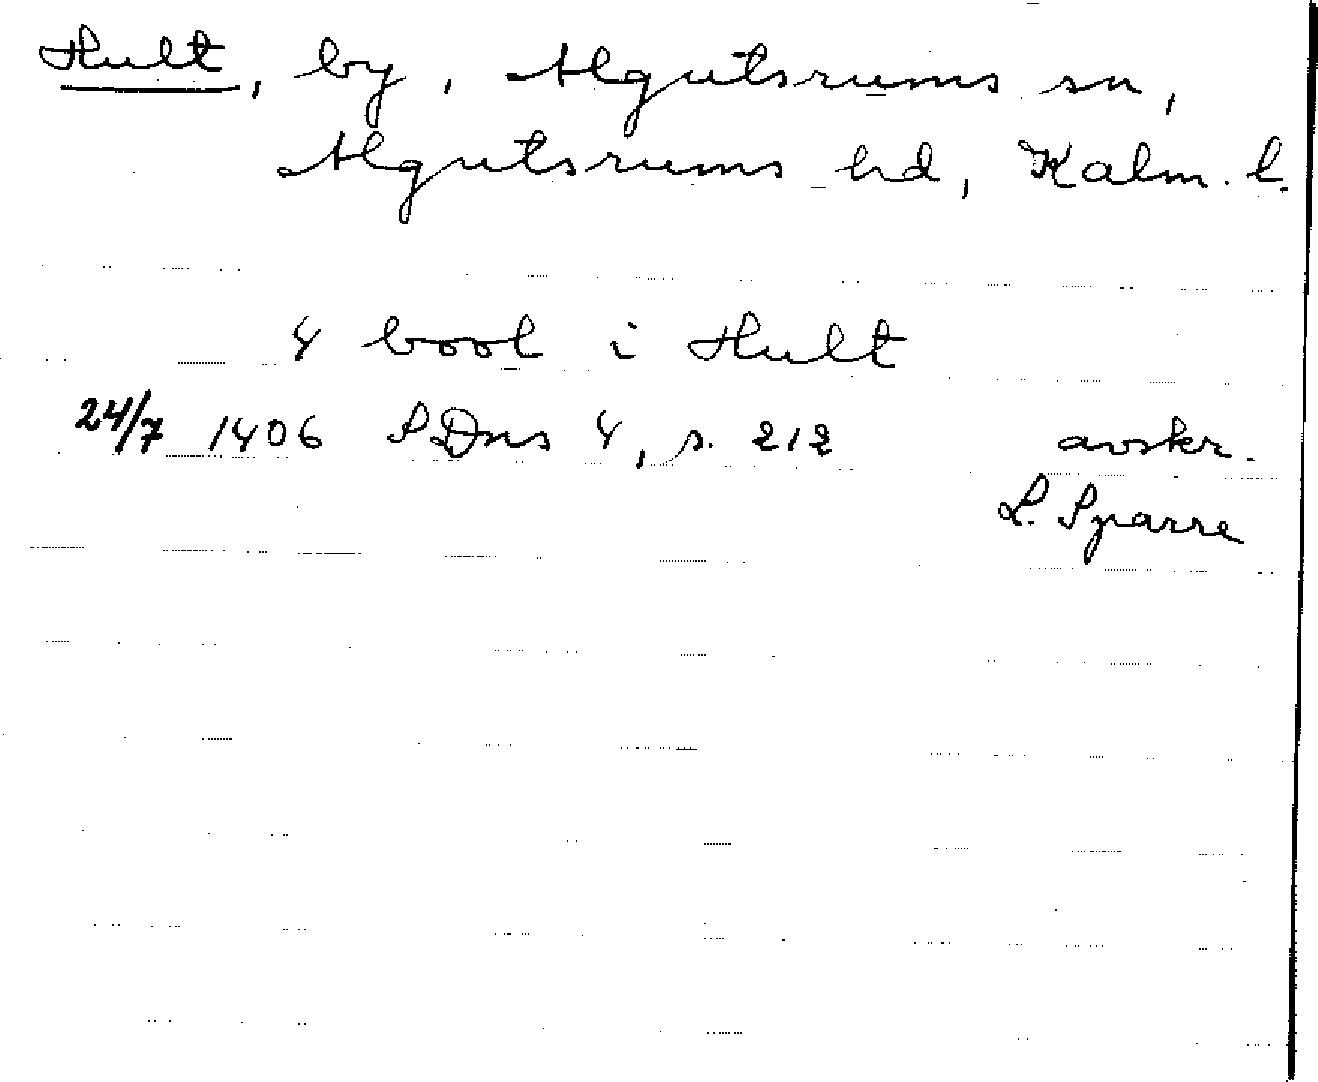 Hult, by, Algutsrums sn,
Algutsrums hd, Kalm. l.
4 bool i Hult
24/7 1406 SDns 4, s. 212 avskr.
L. Sparre